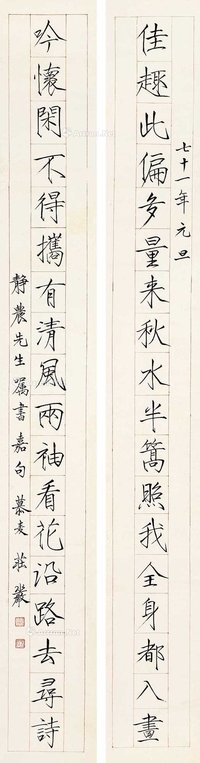 佳趣此偏多量来秋水半篙照我全身都入畫
七十一年元旦
吟懷閑不得攜有清風兩袖看花沿路去尋詩
靜農先生囑書嘉句 慕陵莊嚴